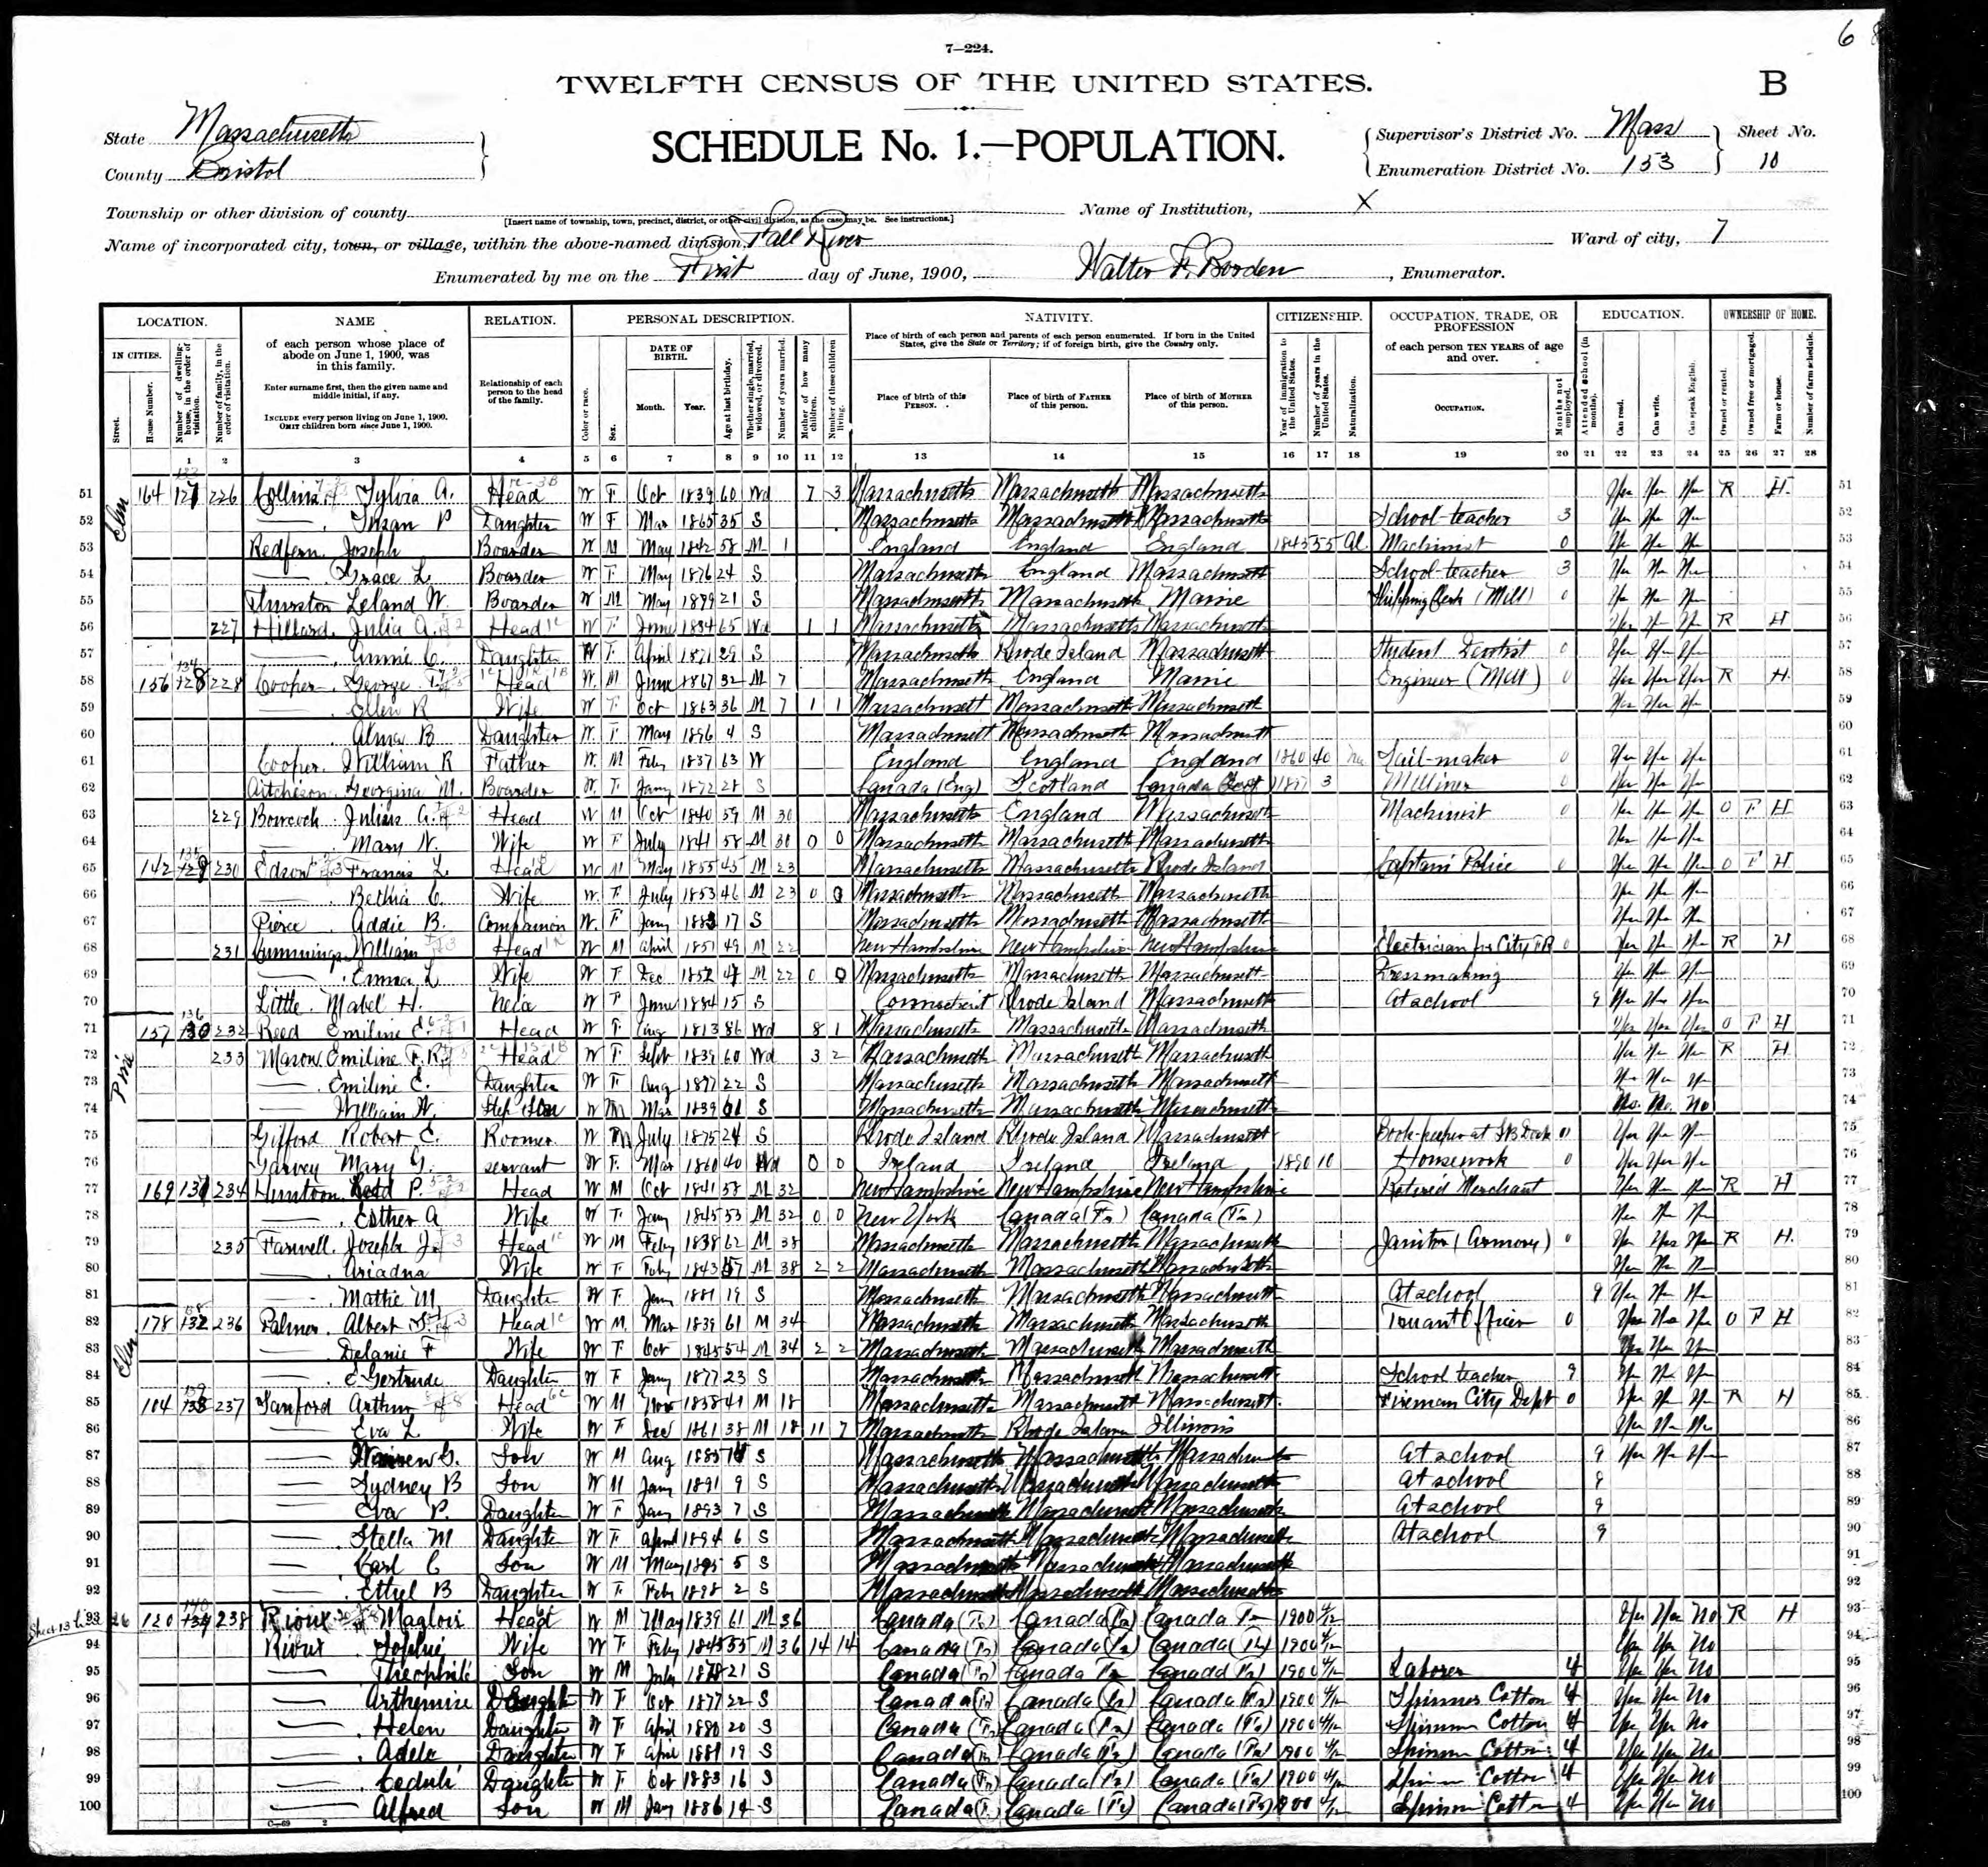 6 8
7—224.
TWELFTH CENSUS OF THE UNITED STATES.
B
State Massachusetts
County Bristol
SCHEDULE No. 1.—POPULATION.
Supervisor's District No. Mass
Enumeration District No. 153
Sheet No.
10
Township or other division of county
[Insert name of township, town, precinct, district, or other civil division, as the case may be. See instructions.]
Name of Institution, X
Name of incorporated city, town, or village, within the above-named division, Fall River
Ward of city, 7
Enumerated by me on the First day of June, 1900, Walter F. Borden, Enumerator.
LOCATION. NAME RELATION. PERSONAL DESCRIPTION. NATIVITY. CITIZENSHIP. OCCUPATION, TRADE, OR PROFESSION EDUCATION. OWNERSHIP OF HOME.
IN CITIES. Street. House Number. Number of dwelling-house, in the order of visitation. Number of family, in the order of visitation.
of each person whose place of abode on June 1, 1900, was in this family.
Enter surname first, then the given name and middle initial, if any.
INCLUDE every person living on June 1, 1900.
OMIT children born since June 1, 1900.
Relationship of each person to the head of the family.
Color or race. Sex. DATE OF BIRTH. Month. Year. Age at last birthday. Whether single, married, widowed, or divorced. Number of years married. Mother of how many children. Number of these children living.
Place of birth of each person and parents of each person enumerated. If born in the United States, give the State or Territory; if of foreign birth, give the Country only.
Place of birth of this PERSON. Place of birth of FATHER of this person. Place of birth of MOTHER of this person.
Year of immigration to the United States. Number of years in the United States. Naturalization.
of each person TEN YEARS of age and over.
OCCUPATION. Months not employed.
Attended school (in months). Can read. Can write. Can speak English.
Owned or rented. Owned free or mortgaged. Farm or house. Number of farm schedule.
1 2 3 4 5 6 7 8 9 10 11 12 13 14 15 16 17 18 19 20 21 22 23 24 25 26 27 28
51 Elm 164 127 226 Collins Sylvia A. Head W F Oct 1839 60 Wd 7 3 Massachusetts Massachusetts Massachusetts Yes Yes Yes R H 51
52 Susan P Daughter W F Mar 1865 35 S Massachusetts Massachusetts Massachusetts School-teacher 3 Yes Yes Yes 52
53 Redfern Joseph Boarder W M May 1842 58 M 1 England England England 1845 55 Al Machinist 0 Yes Yes Yes 53
54 Grace L. Boarder W F May 1876 24 S Massachusetts England Massachusetts School-teacher 3 Yes Yes Yes 54
55 Thurston Leland W. Boarder W M May 1879 21 S Massachusetts Massachusetts Maine Shipping Clerk (Mill) 0 Yes Yes Yes 55
56 227 Hillard Julia A. Head W F June 1834 65 Wd 1 1 Massachusetts Massachusetts Massachusetts Yes Yes Yes R H 56
57 Annie C. Daughter W F April 1871 29 S Massachusetts Rhode Island Massachusetts Student Dentist 0 Yes Yes Yes 57
58 156 128 228 Cooper George Head W M June 1867 32 M 7 Massachusetts England Maine Engineer (Mill) 0 Yes Yes Yes R H 58
59 Ellen R Wife W F Oct 1863 36 M 7 1 1 Massachusetts Massachusetts Massachusetts Yes Yes Yes 59
60 Alma B Daughter W F May 1896 4 S Massachusetts Massachusetts Massachusetts 60
61 Cooper William R Father W M Feby 1837 63 W England England England 1860 40 Na Sail-maker 0 Yes Yes Yes 61
62 Aitchison Georgina M. Boarder W F Jany 1872 28 S Canada (Eng) Scotland Canada 1897 3 Milliner 0 Yes Yes Yes 62
63 229 Julius A. Head W M Oct 1840 59 M 30 Massachusetts England Massachusetts Machinist 0 Yes Yes Yes O F H 63
64 Mary N. Wife W F July 1841 58 M 30 0 0 Massachusetts Massachusetts Massachusetts Yes Yes Yes 64
65 142 129 230 Edson Francis L. Head W M May 1855 45 M 23 Massachusetts Massachusetts Rhode Island Captain Police Yes Yes Yes O F H 65
66 Bethia C Wife W F July 1853 46 M 23 0 0 Massachusetts Massachusetts Massachusetts Yes Yes Yes 66
67 Pierce Addie B. Companion W F Jany 1883 17 S Massachusetts Massachusetts Massachusetts Yes Yes Yes 67
68 231 Cummings William Head W M April 1851 49 M 22 New Hampshire New Hampshire New Hampshire Electrician for City F R 0 Yes Yes Yes R H 68
69 Emma L Wife W F Dec 1852 47 M 22 0 0 Massachusetts Massachusetts Massachusetts Dressmaking Yes Yes Yes 69
70 Little Mabel H. W F June 1884 15 S Connecticut Rhode Island Massachusetts At school 9 Yes Yes Yes 70
71 Pine 157 130 232 Reed Emiline E. Head W F Aug 1813 86 Wd 8 1 Massachusetts Massachusetts Massachusetts Yes Yes Yes O F H 71
72 233 Mason Emiline F. R. Head W F Sept 1839 60 Wd 3 2 Massachusetts Massachusetts Massachusetts Yes Yes Yes R H 72
73 Emiline E. Daughter W F Aug 1877 22 S Massachusetts Massachusetts Massachusetts Yes Yes Yes 73
74 William W. Step Son W M Mar 1839 61 S Massachusetts Massachusetts Massachusetts No No No 74
75 Gifford Robert C. Roomer W M July 1875 24 S Rhode Island Rhode Island Massachusetts Book-keeper at 0 Yes Yes Yes 75
76 Garvey Mary G. Servant W F Mar 1860 40 Wd 0 0 Ireland Ireland Ireland 1890 10 Housework 0 Yes Yes Yes 76
77 169 131 234 Huntoon P. Head W M Oct 1841 58 M 32 New Hampshire New Hampshire New Hampshire Retired Merchant Yes Yes Yes R H 77
78 Esther A Wife W F Jany 1845 53 M 32 0 0 New York Canada (Fr) Canada (Fr) Yes Yes Yes 78
79 235 Farwell Joseph J. Head W M Feby 1838 62 M 38 Massachusetts Massachusetts Massachusetts Janitor (Armory) 0 Yes Yes Yes R H 79
80 Ariadna Wife W F Feby 1843 57 M 38 2 2 Massachusetts Massachusetts Massachusetts Yes Yes Yes 80
81 Mattie M Daughter W F Jany 1881 19 S Massachusetts Massachusetts Massachusetts At school 9 Yes Yes Yes 81
82 Elm 178 132 236 Palmer Albert Head W M Mar 1839 61 M 34 Massachusetts Massachusetts Massachusetts Truant Officer 0 Yes Yes Yes O F H 82
83 Delanie F Wife W F Oct 1845 54 M 34 2 2 Massachusetts Massachusetts Massachusetts Yes Yes Yes 83
84 E Gertrude Daughter W F Jany 1877 23 S Massachusetts Massachusetts Massachusetts School teacher Yes Yes Yes 84
85 104 133 237 Sanford Arthur Head W M Nov 1858 41 M 18 Massachusetts Massachusetts Massachusetts Fireman City Dept 0 Yes Yes Yes R H 85
86 Eva L. Wife W F Dec 1861 38 M 18 11 7 Massachusetts Rhode Island Illinois Yes Yes Yes 86
87 Warren G. Son W M Aug 1885 14 S Massachusetts Massachusetts Massachusetts At school 9 Yes Yes Yes 87
88 Sydney B Son W M Jany 1891 9 S Massachusetts Massachusetts Massachusetts At school 8 88
89 Eva P. Daughter W F Jany 1893 7 S Massachusetts Massachusetts Massachusetts At school 9 89
90 Stella M Daughter W F April 1894 6 S Massachusetts Massachusetts Massachusetts At school 9 90
91 Carl C Son W M May 1895 5 S Massachusetts Massachusetts Massachusetts 91
92 Ethel B Daughter W F Feby 1898 2 S Massachusetts Massachusetts Massachusetts 92
93 120 134 238 Rioux Magloir Head W M May 1839 61 M 36 Canada (Fr) Canada (Fr) Canada Fr 1900 4/12 Yes Yes No R H 93
94 Rioux Sophie Wife W F Feby 1845 55 M 36 14 14 Canada (Fr) Canada (Fr) Canada (Fr) 1900 4/12 Yes Yes No 94
95 Theophile Son W M July 1878 21 S Canada (Fr) Canada Fr Canada (Fr) 1900 4/12 Laborer 4 Yes Yes No 95
96 Arthemise Daughter W F Oct 1877 22 S Canada (Fr) Canada (Fr) Canada (Fr) 1900 4/12 Spinner Cotton 4 Yes Yes No 96
97 Helen Daughter W F April 1880 20 S Canada (Fr) Canada (Fr) Canada (Fr) 1900 4/12 Spinner Cotton 4 Yes Yes No 97
98 Adele Daughter W F April 1881 19 S Canada (Fr) Canada (Fr) Canada (Fr) 1900 4/12 Spinner Cotton 4 Yes Yes No 98
99 Cedulie Daughter W F Oct 1883 16 S Canada (Fr) Canada (Fr) Canada (Fr) 1900 4/12 Spinner Cotton 4 Yes Yes No 99
100 Alfred Son W M Jany 1886 14 S Canada (Fr) Canada (Fr) Canada (Fr) 1900 4/12 Spinner Cotton 4 Yes Yes No 100